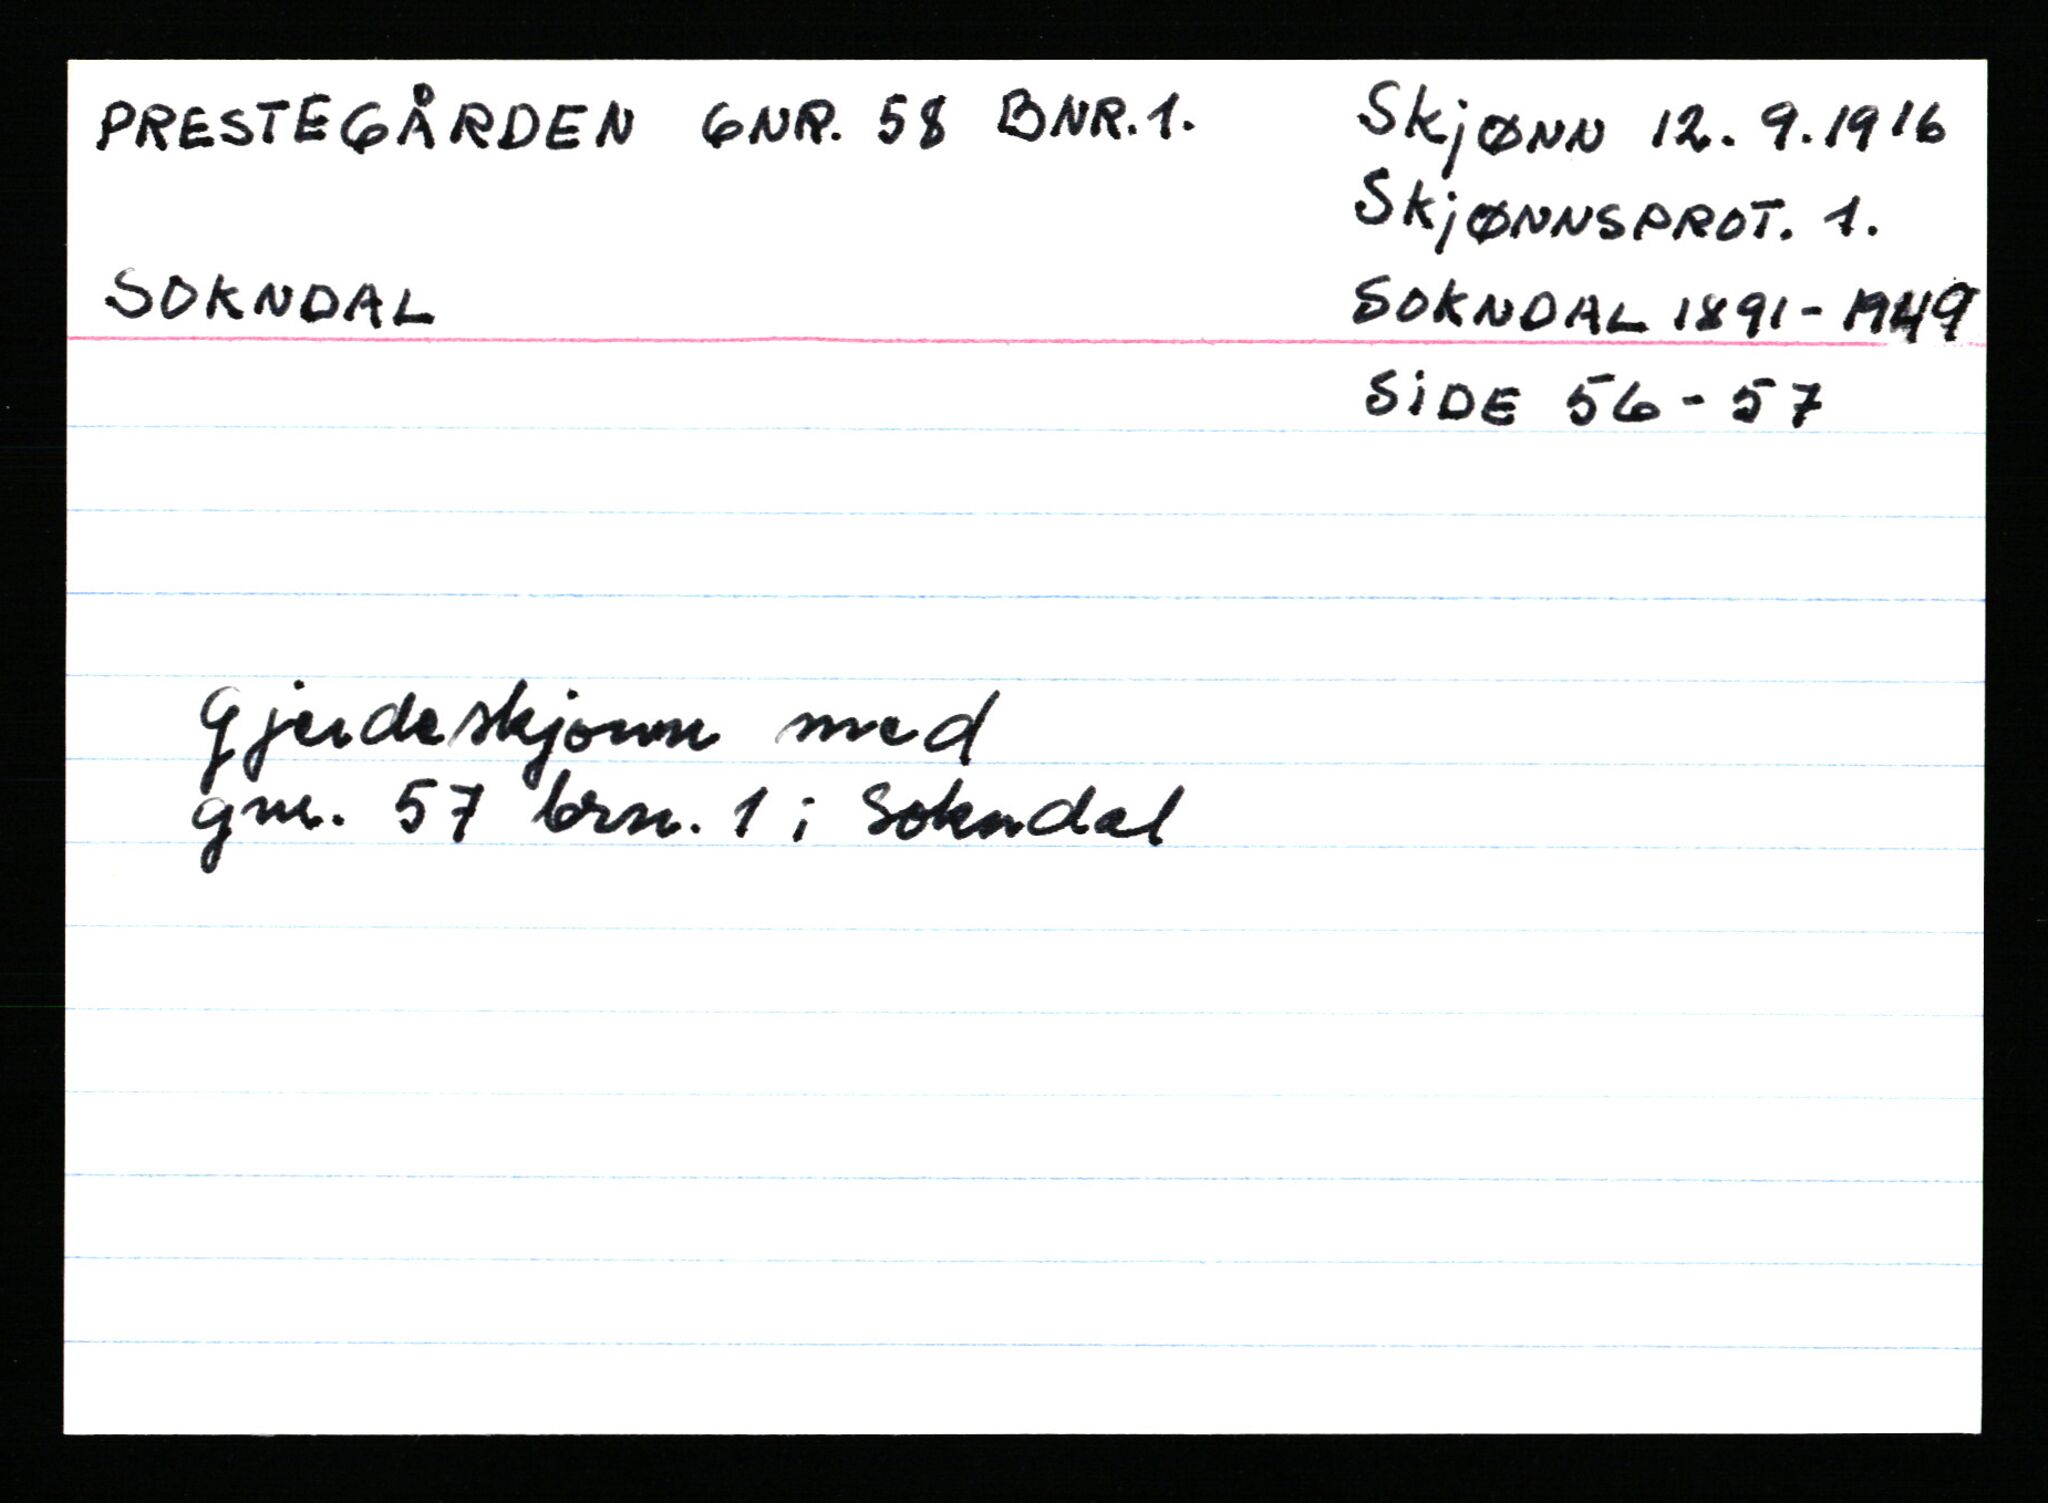 PRESTEGÅRDEN GNR. 58 BNR. 1.
SOKNDAL
Skjønn 12. 9. 1916
Skjønnsprot. 1.
SOKNDAL 1891 - 1949
SiDE 56 - 57
Gjerdeskjønn med
gnr. 57 brn. 1 i Sokndal